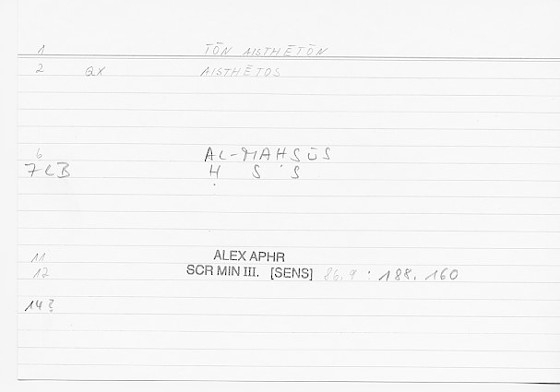 1 TŌN AISTHĒTŌN
2 QX AISTHĒTOS
6 AL-MAḤSŪS
7LB Ḥ S S
11 ALEX APHR
12 SCR MIN III. [SENS] 86.9 : 188.160
14?